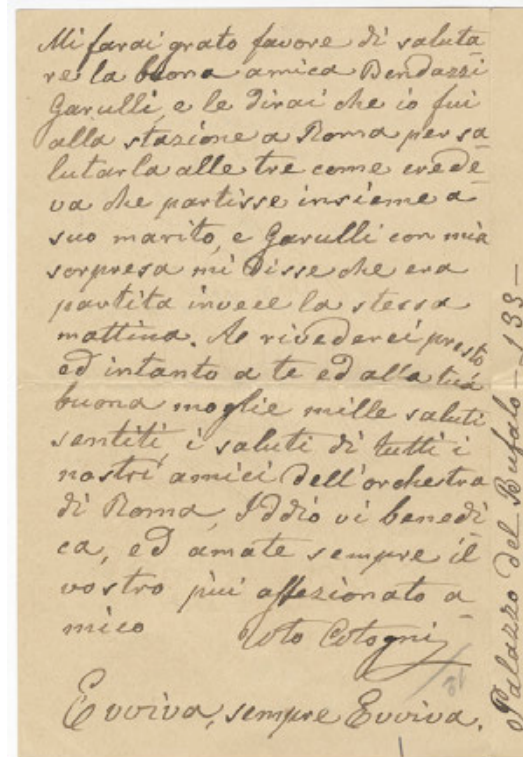 Mi farai grato favore di saluta-
re la buona amica Bendazzi
Garulli, e le dirai che io fui
alla stazione a Roma per sa-
lutarla alle tre come crede-
va che partisse insieme a
suo marito, e Garulli con mia
sorpresa mi disse che era
partita invece la stessa
mattina. A rivederci presto
ed intanto a te ed alla tua
buona moglie mille saluti
sentiti, i saluti di tutti i
nostri amici dell'orchestra
di Roma, Iddio vi benedi-
ca, ed amate sempre il
vostro più affezionato a-
mico Toto Cotogni
Evviva, sempre Evviva.
Palazzo del Bufalo - 133 -